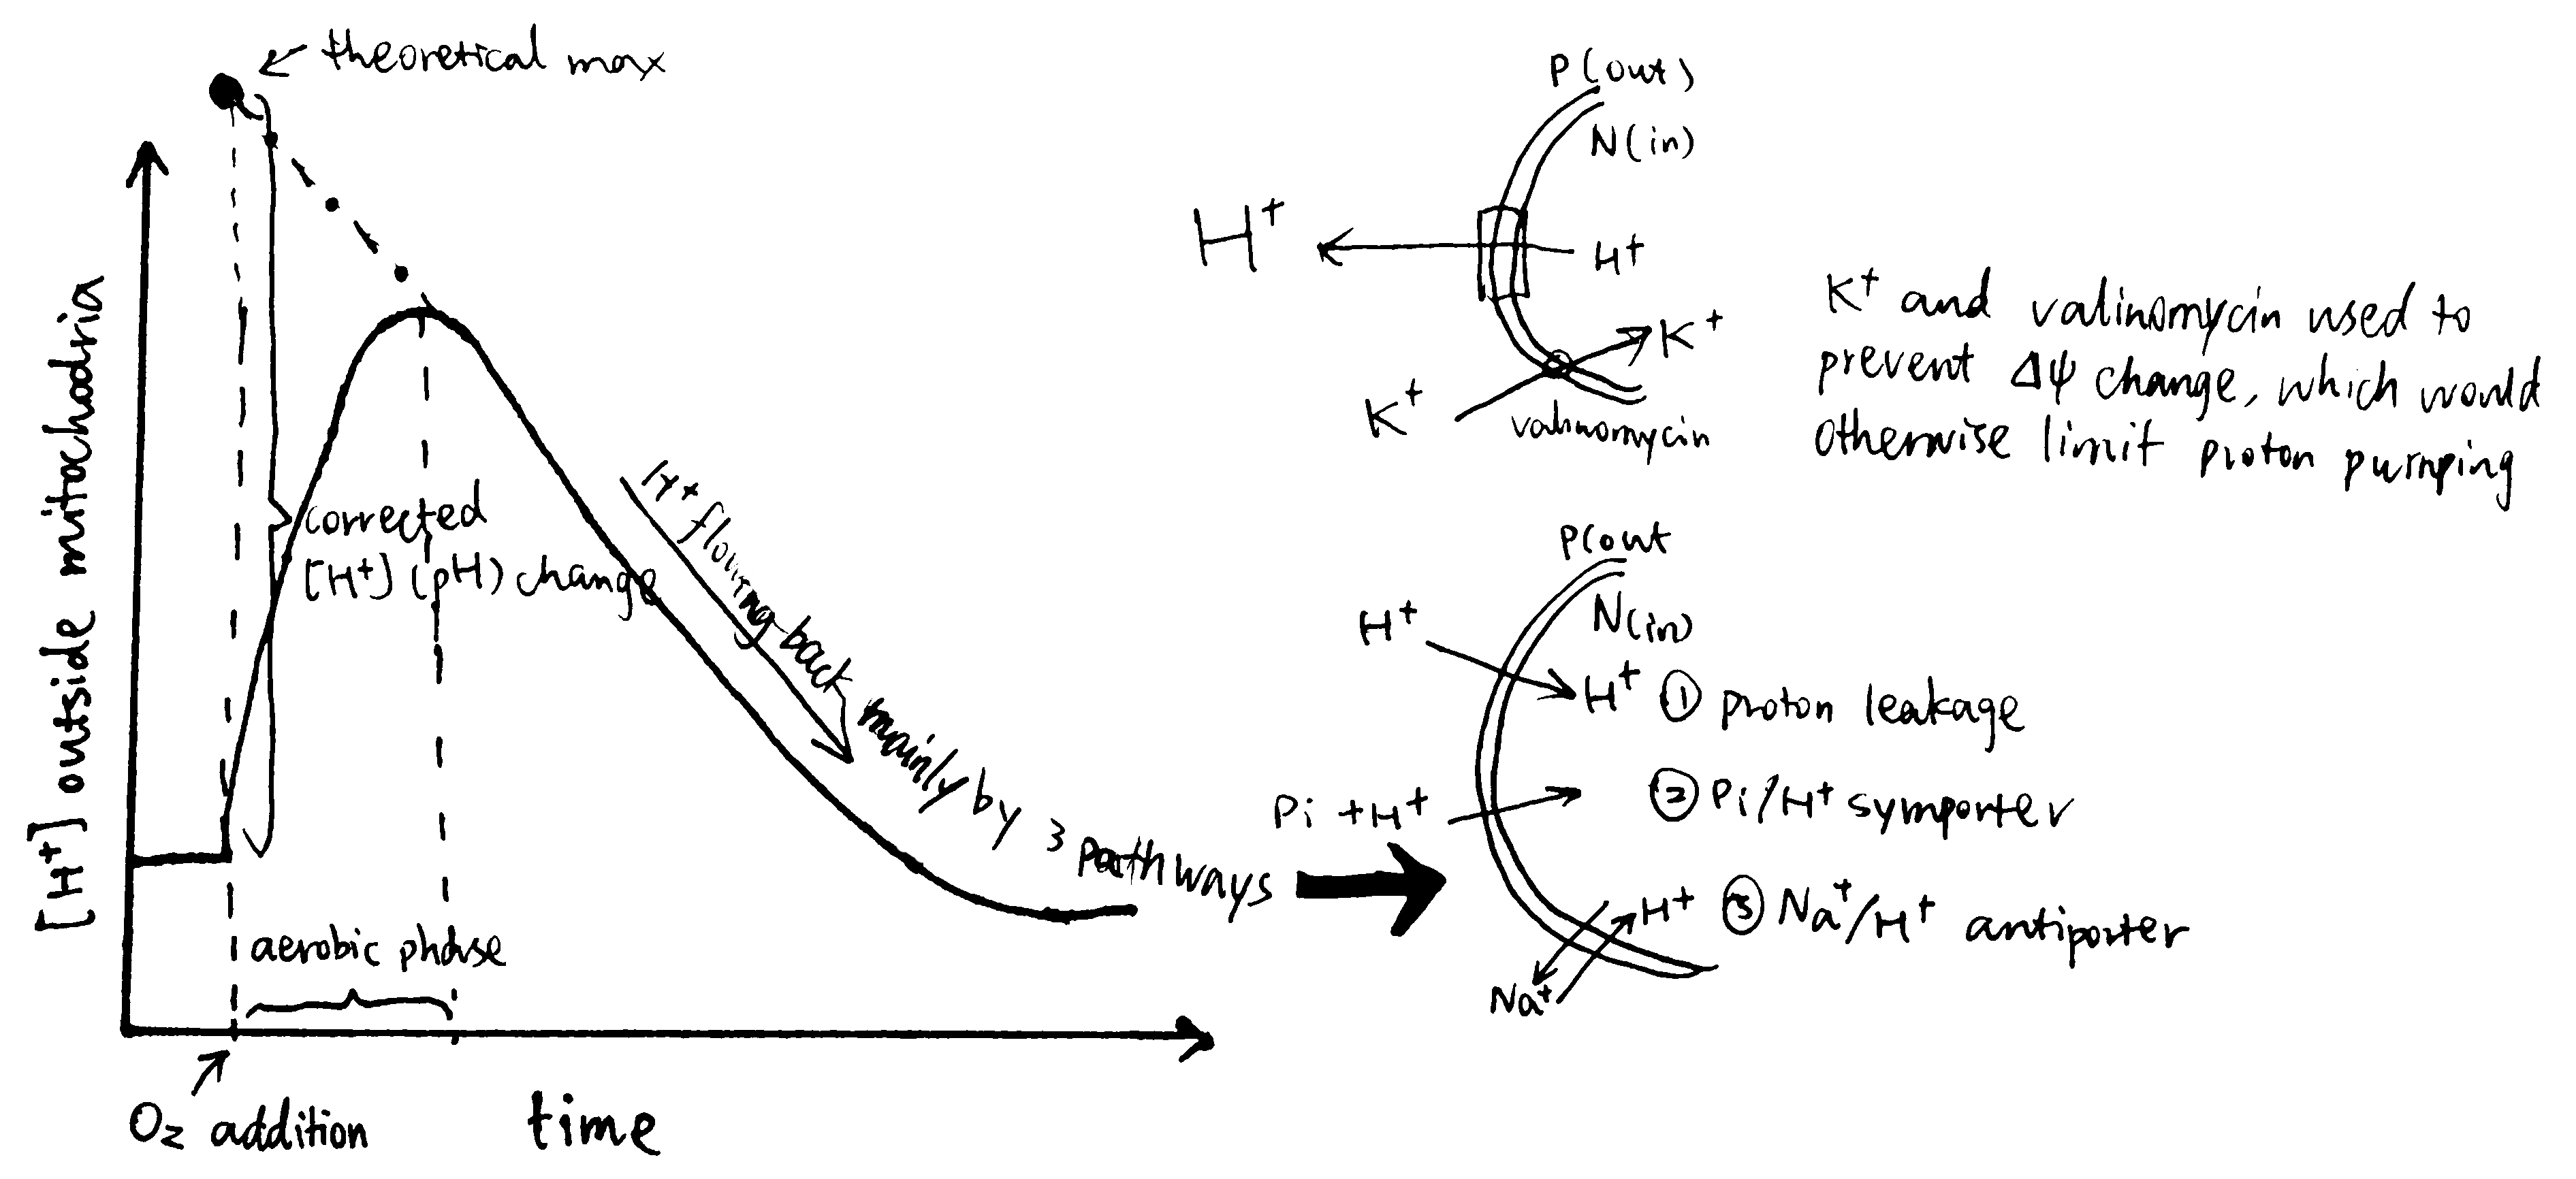 theoretical max
[H⁺] outside mitochodria
corrected
[H⁺] (pH) change
H⁺ flowing back mainly by 3 pathways
aerobic phase
O₂ addition
time
P(out)
N(in)
H⁺
H⁺
K⁺
K⁺
valinomycin
K⁺ and valinomycin used to
prevent Δψ change, which would
otherwise limit proton pumping
P(out
N(in)
H⁺
H⁺ ① proton leakage
Pi + H⁺
② Pi/H⁺ symporter
H⁺ ③ Na⁺/H⁺ antiporter
Na⁺